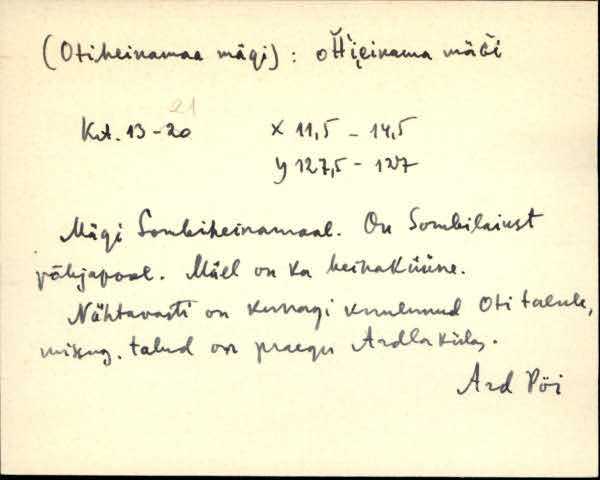 (Otiheinamaa mägi) : oŤŤi̮einama mäǵi
21
Krt. 13-20 x 11,5 - 14,5
y 127,5 - 127
Mägi Sombiheinamaal. On Sombilaiust
põhjapool. Mäel on ka heinaküüne.
Nähtavasti on kunagi kuulunud Oti talule,
misug. talud on praegu Ardla külas.
Ard Pöi